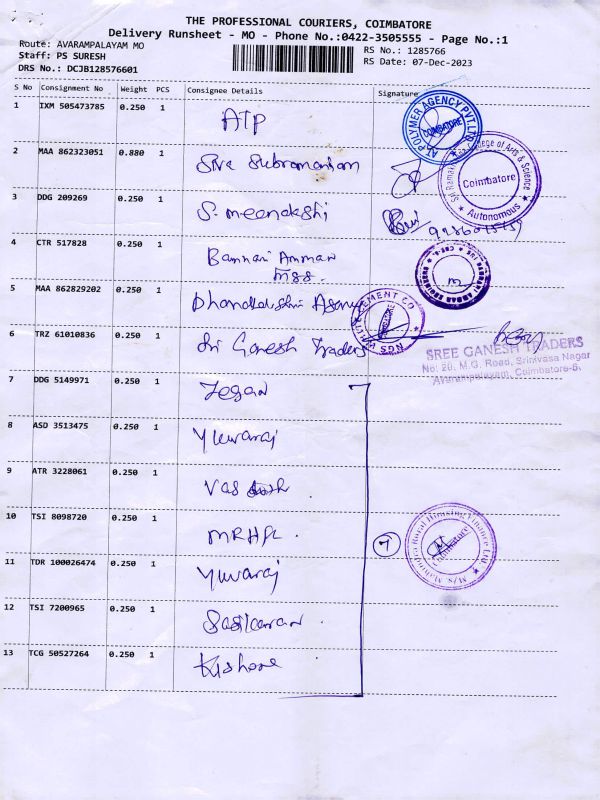 THE PROFESSIONAL COURIERS, COIMBATORE
Delivery Runsheet - MO - Phone No.:0422-3505555 - Page No.:1
Route: AVARAMPALAYAM MO
Staff: PS SURESH
DRS No.: DCJB128576601
RS No.: 1285766
RS Date: 07-Dec-2023
S No Consignment No Weight PCS Consignee Details Signature
1 IXM 505473785 0.250 1 ATP
A1 POLYMER AGENCY PVT.LTD
COIMBATORE
2 MAA 862323051 0.880 1 Siva Subramaniam
College of Arts & Science
Coimbatore
Autonomous
3 DDG 209269 0.250 1 S. meenakshi
4 CTR 517828 0.250 1 Bannari Amman
5 MAA 862829202 0.250 1
WHITE CEMENT CO
NGS
6 TRZ 61010836 0.250 1 Sri Ganesh Traders
SREE GANESH TRADERS
No: 20, M.G. Road, Srinivasa Nagar
Avarampalayam, Coimbatore-6.
7 DDG 5149971 0.250 1 Jegan
8 ASD 3513475 0.250 1 Yuvaraj
9 ATR 3228061 0.250 1
10 TSI 8098720 0.250 1 MRHFL.
7
M/s. Mahindra Rural Housing Finance Ltd
Coimbatore
11 TDR 100026474 0.250 1 Yuvaraj
12 TSI 7200965 0.250 1
13 TCG 50527264 0.250 1 Kishore